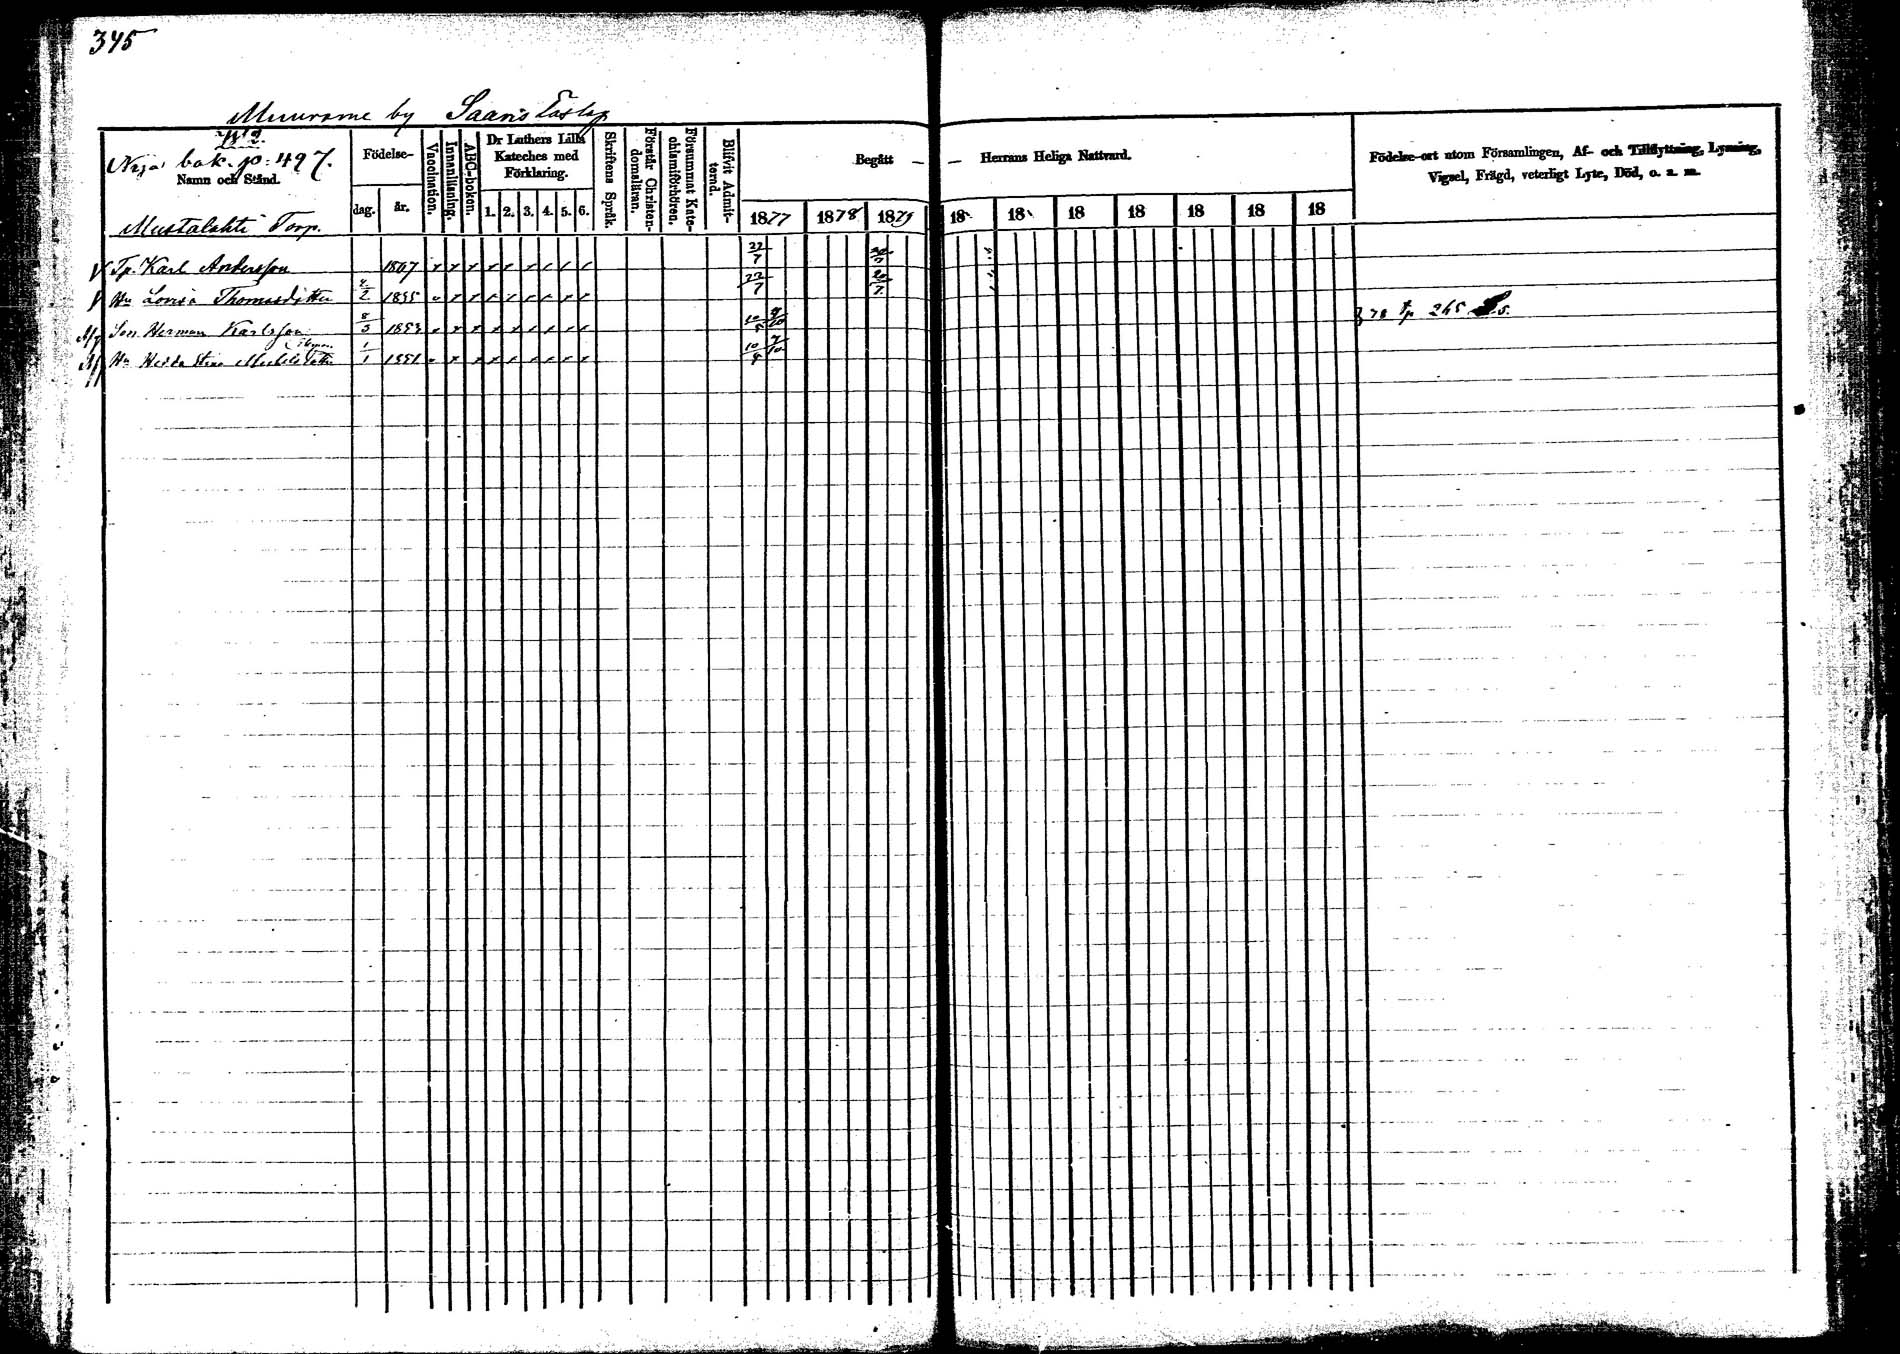 345
Muurame by Saaris
No 2.
Nya bok. p: 497.
Namn och Stånd.
Födelse-
dag.
år.
Vaccination.
Innanläsning.
ABC-boken.
Dr Luthers Lilla Kateches med Förklaring.
1. 2. 3. 4. 5. 6.
Skriftens Språk.
Förstår Christendomsläran.
Försummat Katechismiförhören.
Blifvit Admitterad.
Begått — — Herrans Heliga Nattvard.
1877 1878 1879 18 18 18 18 18 18 18
Födelse-ort utom Församlingen, Af- och Tillflyttning, Lysning,
Vigsel, Frägd, veterligt Lyte, Död, o. s. m.
Mustalahti Torp.
Tp. Karl Andersson 22/7
Hu Lovisa 22/7 20/7
Son Herman Karlsson 8/3
Hu Hedda Stina 1/1
78 tp 265